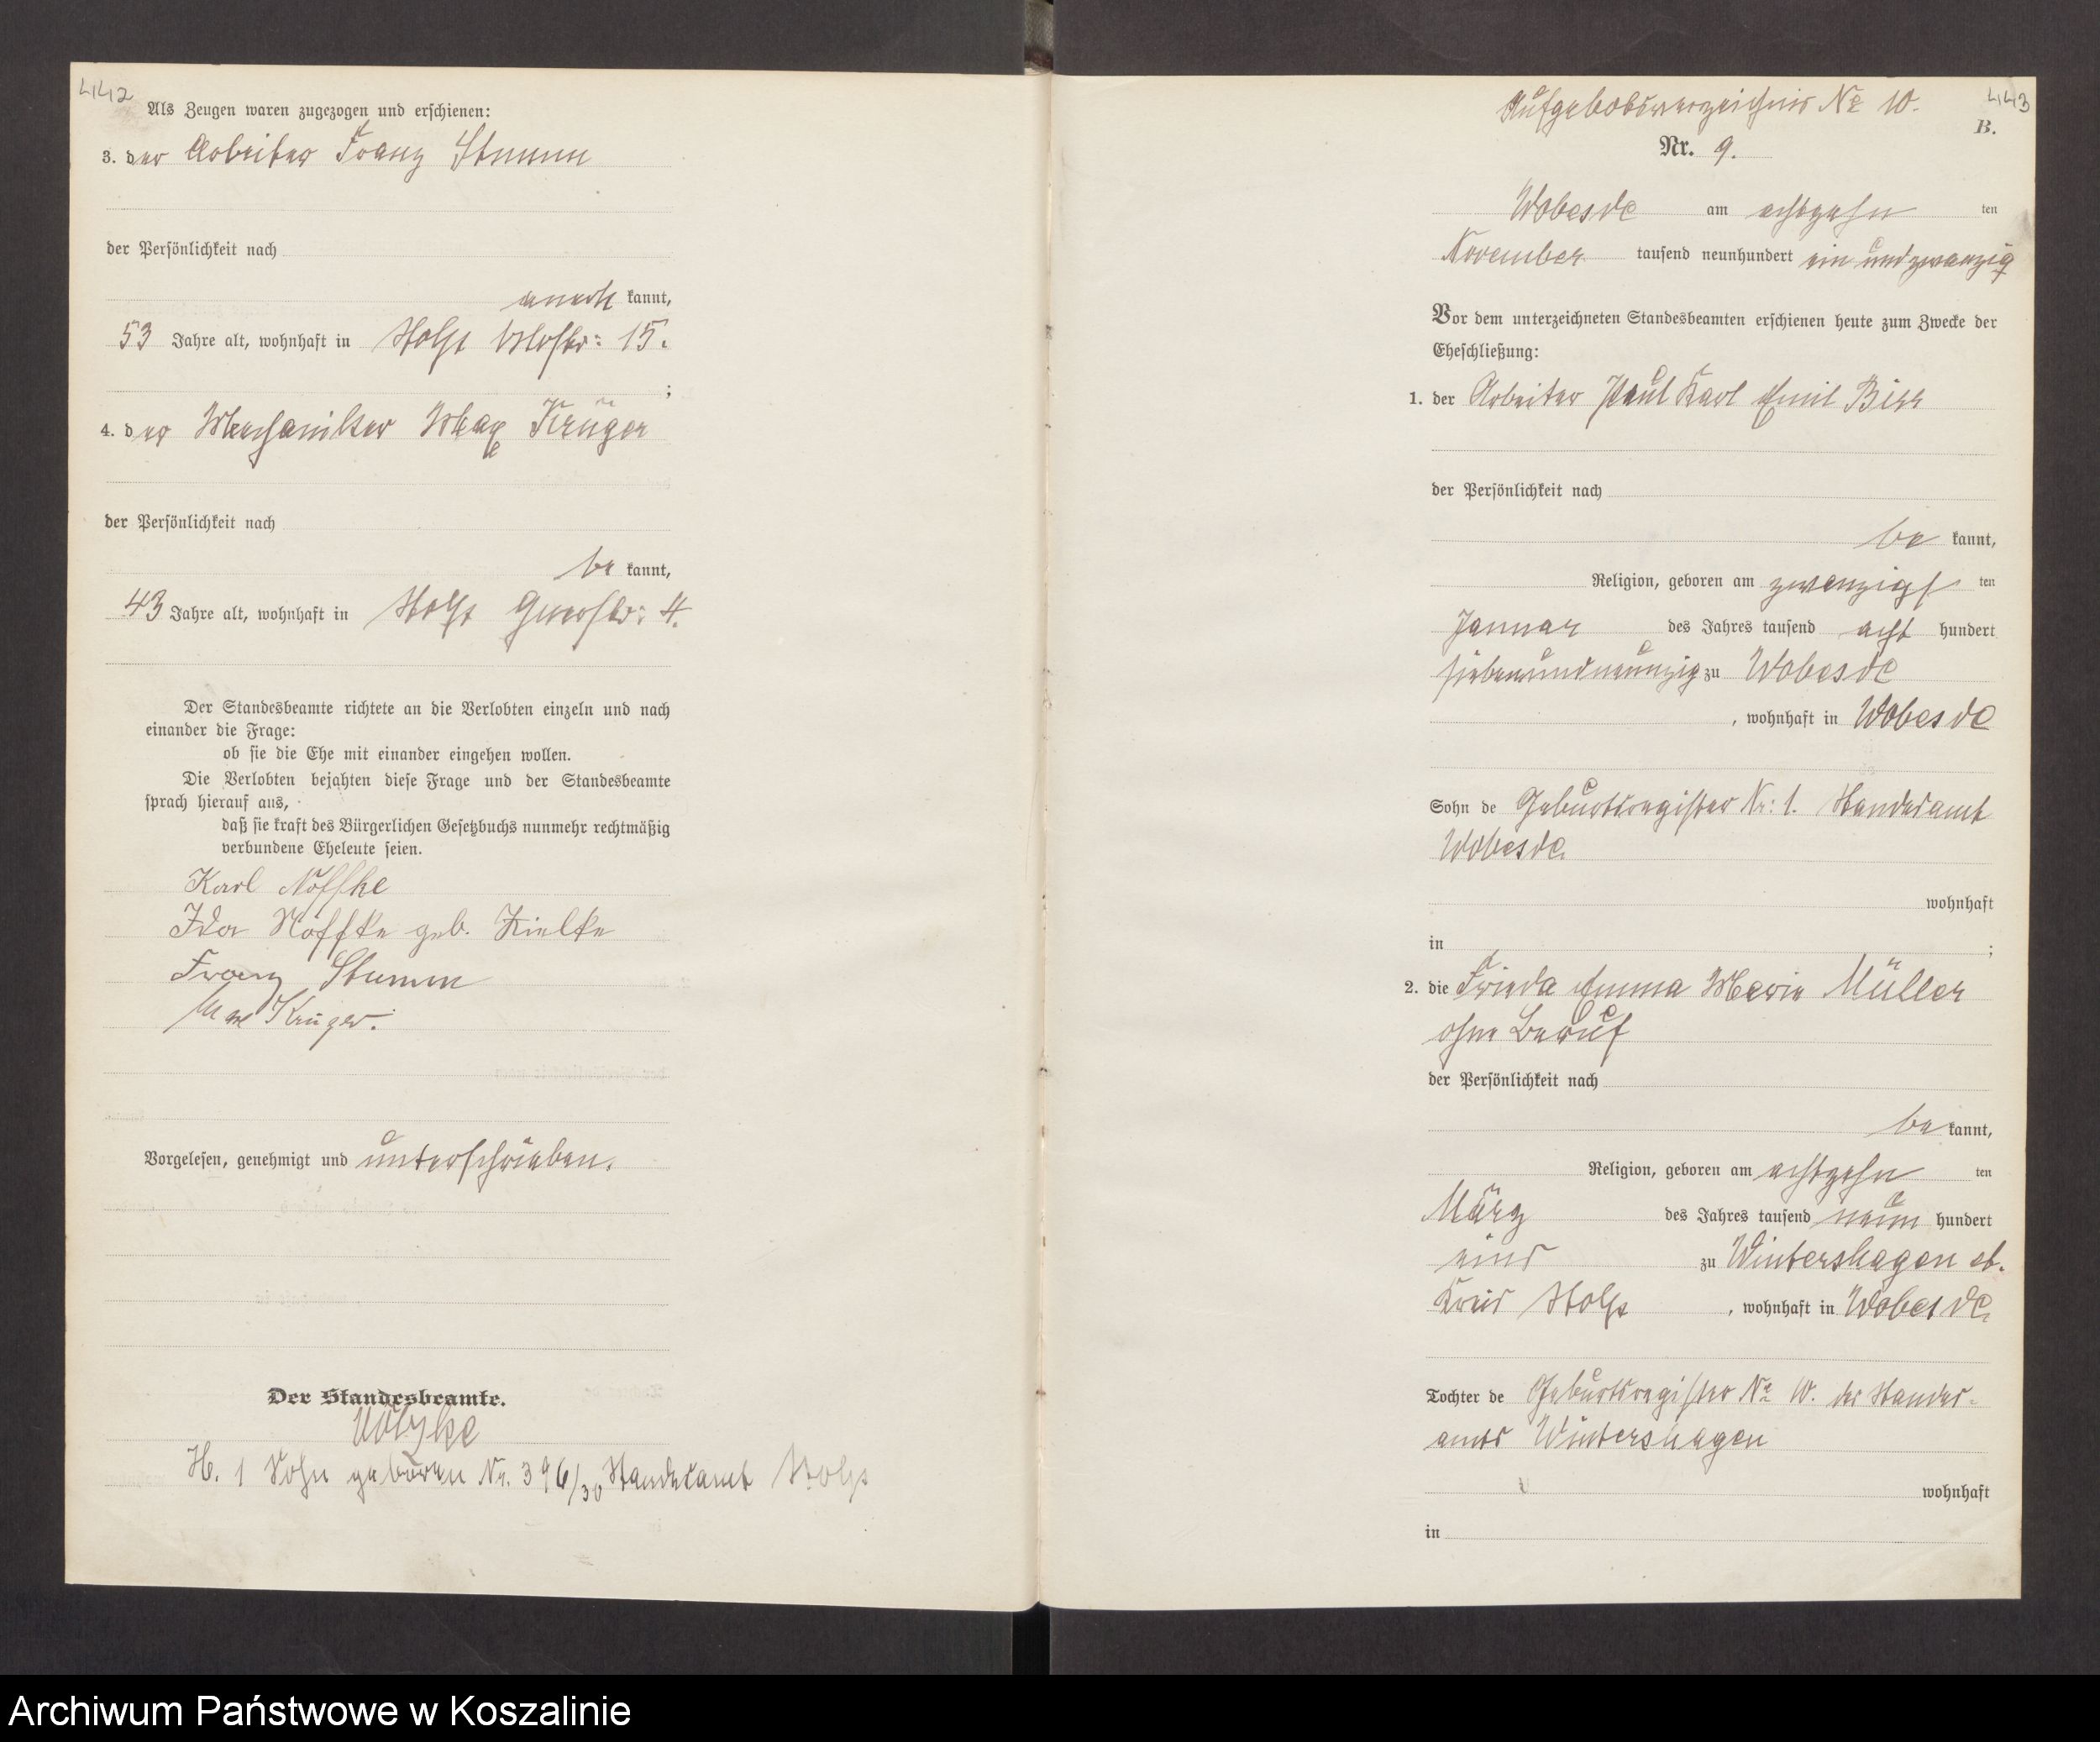 442
Als Zeugen waren zugezogen und erschienen:
3. der Arbeiter Franz Stumm
der Persönlichkeit nach
kannt,
53 Jahre alt, wohnhaft in Stolp 15.
;
4. der Mechaniker Max Krüger
der Persönlichkeit nach
be kannt,
43 Jahre alt, wohnhaft in Stolp 4.
Der Standesbeamte richtete an die Verlobten einzeln und nach
einander die Frage:
ob sie die Ehe mit einander eingehen wollen.
Die Verlobten bejahten diese Frage und der Standesbeamte
sprach hierauf aus,
daß sie kraft des Bürgerlichen Gesetzbuchs nunmehr rechtmäßig
verbundene Eheleute seien.
Karl Noffke
Ida Noffke geb. Kielke
Franz Stumm
Max Krüger.
Vorgelesen, genehmigt und unterschrieben.
Der Standesbeamte.
H. 1 Sohn geboren Nr. 396/30 Standesamt Stolp
443
Aufgebotsverzeichnis № 10.
B.
Nr. 9.
Wobesde am achtzehn ten
November tausend neunhundert ein und zwanzig
Vor dem unterzeichneten Standesbeamten erschienen heute zum Zwecke der
Eheschließung:
1. der Arbeiter Paul Karl Emil Birr
der Persönlichkeit nach
be kannt,
Religion, geboren am zwanzigs ten
Januar des Jahres tausend acht hundert
siebenundneunzig zu Wobesde
, wohnhaft in Wobesde
Sohn de Geburtsregister Nr: 1. Standesamt
Wobesde.
wohnhaft
in ;
2. die Frieda Emma Marie Müller
ohne Beruf
der Persönlichkeit nach
be kannt,
Religion, geboren am achtzehn ten
März des Jahres tausend neun hundert
eins zu Wintershagen
Kreis Stolp , wohnhaft in Wobesde.
Tochter de Geburtsregister № 10. des Standes-
amts Wintershagen
wohnhaft
in
Archiwum Państwowe w Koszalinie